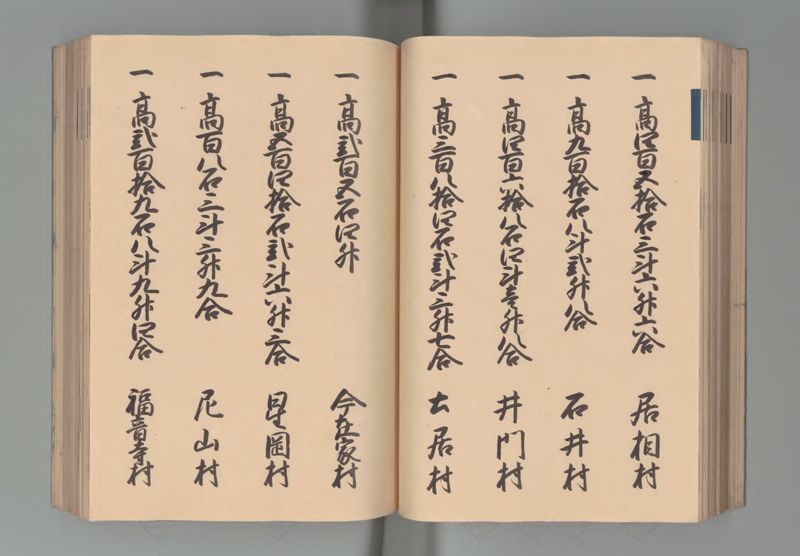 一 高四百五拾石三斗六升六合 居相村
一 高九百拾石八斗弐升八合 石井村
一 高四百六拾八石四斗壱升八合 井門村
一 高三百八拾四石弐斗三升七合 土居村
一 高弐百五石四升 今在家村
一 高五百四拾石弐斗六升三合 星岡村
一 高百八石三斗三升九合 尼山村
一 高弐百拾九石八斗九升四合 福音寺村